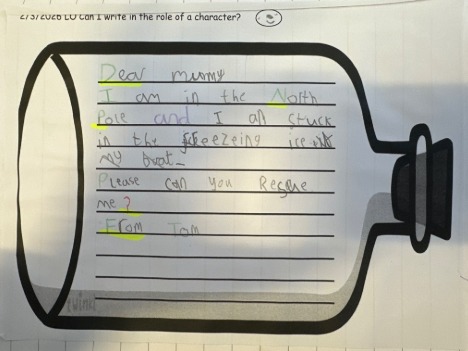 2/3/2026 LO Can I write in the role of a character?
Dear mummy
I am in the North
Pole and I am Stuck
in the freezeing ice
my boat
Please can you Rescue
me?
From Tom